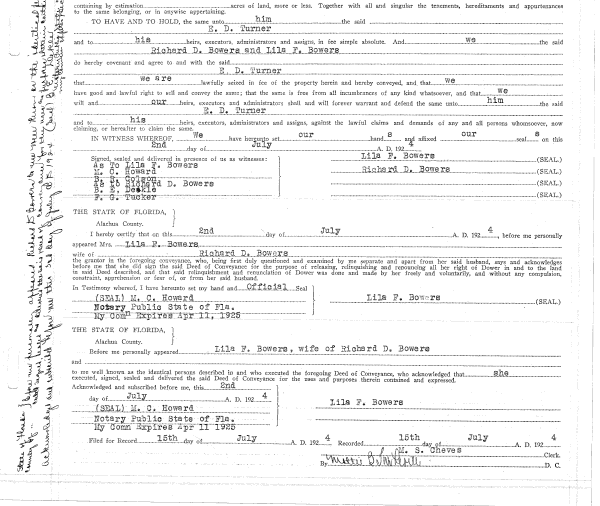 containing by estimation acres of land, more or less. Together with all and singular the tenements, hereditaments and appurtenances
to the same belonging, or in anywise appertaining.
TO HAVE AND TO HOLD, the same unto him the said
E. D. Turner
and to his heirs, executors, administrators and assigns, in fee simple absolute. And we the said
Richard D. Bowers and Lila F. Bowers
do hereby covenant and agree to and with the said
E. D. Turner
that we are lawfully seized in fee of the property herein and hereby conveyed, and that we
have good and lawful right to sell and convey the same; that the same is free from all incumbrances of any kind whatsoever, and that we
will and our heirs, executors and administrators shall and will forever warrant and defend the same unto him the said
E. D. Turner
and to his heirs, executors, administrators and assigns, against the lawful claims and demands of any and all persons whomsoever, now
claiming, or hereafter to claim the same.
IN WITNESS WHEREOF, We have hereunto set our hand s and affixed our seal s on this
2nd day of July A. D. 192 4
Signed, sealed and delivered in presence of us as witnesses:
As To Lila F. Bowers Lila F. Bowers (SEAL)
M. C. Howard Richard D. Bowers (SEAL)
B. S. Colson
As to Richard D. Bowers (SEAL)
B. E. Deakle
F. G. Tucker (SEAL)
THE STATE OF FLORIDA,
Alachua County.
I hereby certify that on this 2nd day of July A. D. 192 4, before me personally
appeared Mrs. Lila F. Bowers
wife of Richard D. Bowers
the grantor in the foregoing conveyance, who, being first duly questioned and examined by me separate and apart from her said husband, says and acknowledges
before me that she did sign the said Deed of Conveyance for the purpose of releasing, relinquishing and renouncing all her right of Dower in and to the land
in said Deed described, and that said relinquishment and renunciation of Dower was done and made by her freely and voluntarily, and without any compulsion,
constraint, apprehension or fear of, or from her said husband.
In Testimony whereof, I have hereunto set my hand and Official Seal
(SEAL) M. C. Howard Lila F. Bowers (SEAL)
Notary Public State of Fla.
My Com Expires Apr 11, 1925
THE STATE OF FLORIDA,
Alachua County.
Before me personally appeared Lila F. Bowers, wife of Richard D. Bowers
and
to me well known as the identical persons described in and who executed the foregoing Deed of Conveyance, who acknowledged that she
executed, signed, sealed and delivered the said Deed of Conveyance for the uses and purposes therein contained and expressed.
Acknowledged and subscribed before me, this 2nd
day of July A. D. 192 4
(SEAL) M. C. Howard Lila F. Bowers
Notary Public State of Fla.
My Comm Expires Apr 11 1925
Filed for Record 15th day of July A. D. 192 4 Recorded 15th day of July 4
M. S. Cheves Clerk.
By D. C.